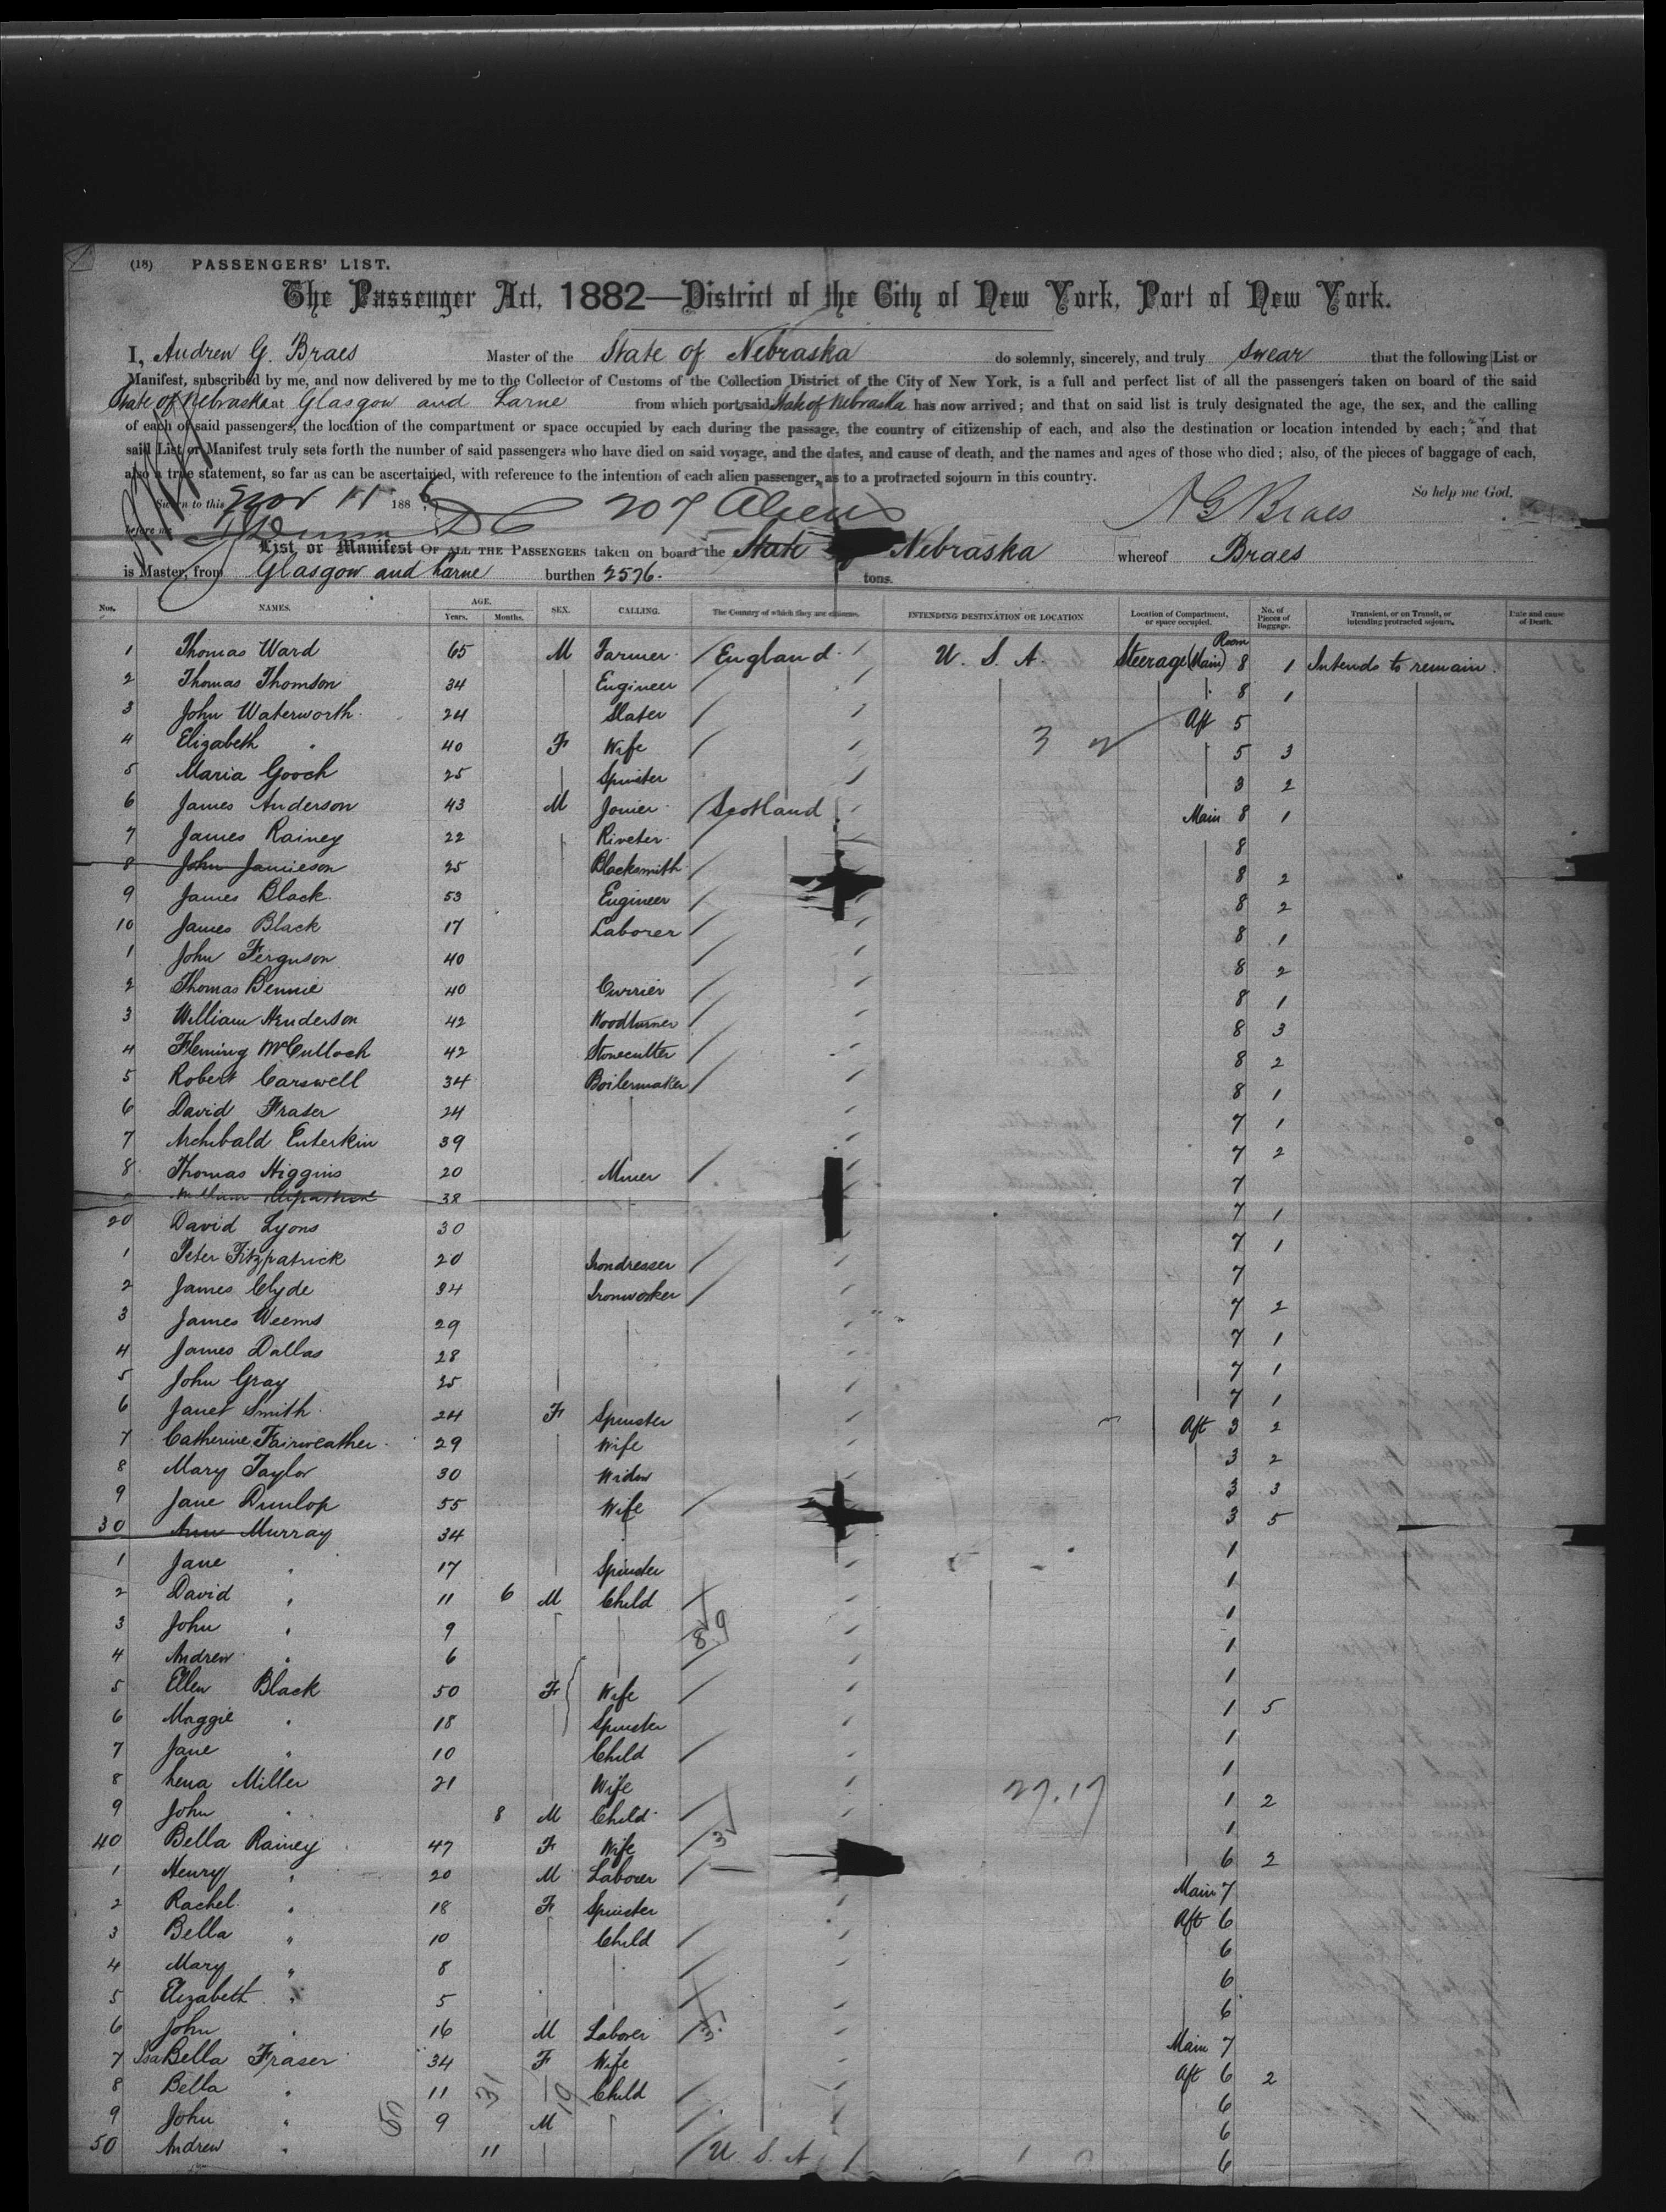 (18) PASSENGERS' LIST.
The Passenger Act, 1882—District of the City of New York, Port of New York.
I, Andrew G. Braes Master of the State of Nebraska do solemnly, sincerely, and truly swear that the following List or
Manifest, subscribed by me, and now delivered by me to the Collector of Customs of the Collection District of the City of New York, is a full and perfect list of all the passengers taken on board of the said
State of Nebraska at Glasgow and Larne from which port said State of Nebraska has now arrived; and that on said list is truly designated the age, the sex, and the calling
of each of said passengers, the location of the compartment or space occupied by each during the passage, the country of citizenship of each, and also the destination or location intended by each; and that
said List or Manifest truly sets forth the number of said passengers who have died on said voyage, and the dates, and cause of death, and the names and ages of those who died; also, of the pieces of baggage of each,
also a true statement, so far as can be ascertained, with reference to the intention of each alien passenger, as to a protracted sojourn in this country.
So help me God.
Sworn to this Nov 11 188
207 Aliens A G Braes
before me
List or Manifest OF ALL THE PASSENGERS taken on board the State Nebraska whereof Braes
is Master, from Glasgow and Larne burthen 2576. tons.
Nos. NAMES. AGE. Years. Months. SEX. CALLING. The Country of which they are citizens. INTENDING DESTINATION OR LOCATION Location of Compartment, or space occupied. No. of Pieces of Baggage. Transient, or on Transit, or intending protracted sojourn. Date and cause of Death.
Room
1 Thomas Ward 65 M Farmer England U. S. A. Steerage (Main) 8 1 Intends to remain.
2 Thomas Thomson 34 Engineer 8 1
3 John Waterworth 24 Slater Aft 5
4 Elizabeth " 40 F Wife 5 3
5 Maria Gooch 25 Spinster 3 2
6 James Anderson 43 M Joiner Scotland Main 8 1
7 James Rainey 22 Riveter 8
8 John Jamieson 25 Blacksmith 8 2
9 James Black 53 Engineer 8 2
10 James Black 17 Laborer 8 1
1 John Ferguson 40 8 2
2 Thomas Bennie 40 Currier 8 1
3 William Henderson 42 Woodturner 8 3
4 Fleming McCulloch 42 Stonecutter 8 2
5 Robert Carswell 34 Boilermaker 8 1
6 David Fraser 24 7 1
7 Archibald Enterkin 39 7 2
8 Thomas Higgins 20 Miner 7
38 7 1
20 David Lyons 30 7 1
1 Peter Fitzpatrick 20 Irondresser 7
2 James Clyde 34 Ironworker 7 2
3 James Weems 29 7 1
4 James Dallas 28 7 1
5 John Gray 25 7 1
6 Janet Smith 24 F Spinster Aft 3 2
7 Catherine Fairweather 29 Wife 3 2
8 Mary Taylor 30 Widow 3 3
9 Jane Dunlop 55 Wife 3 5
30 Ann Murray 34 1
1 Jane " 17 Spinster 1
2 David " 11 6 M Child 1
3 John " 9 1
4 Andrew " 6 1
5 Ellen Black 50 F Wife 1 5
6 Maggie " 18 Spinster 1
7 Jane " 10 Child 1
8 Lena Miller 21 Wife 1 2
9 John " 8 M Child 1
40 Bella Rainey 47 F Wife 6 2
1 Henry " 20 M Laborer Main 7
2 Rachel " 18 F Spinster Aft 6
3 Bella " 10 Child 6
4 Mary " 8 6
5 Elizabeth " 5 6
6 John " 16 M Laborer Main 7
7 IsaBella Fraser 34 F Wife Aft 6 2
8 Bella " 11 Child 6
9 John " 9 M 6
50 Andrew " 11 U. S. A 6